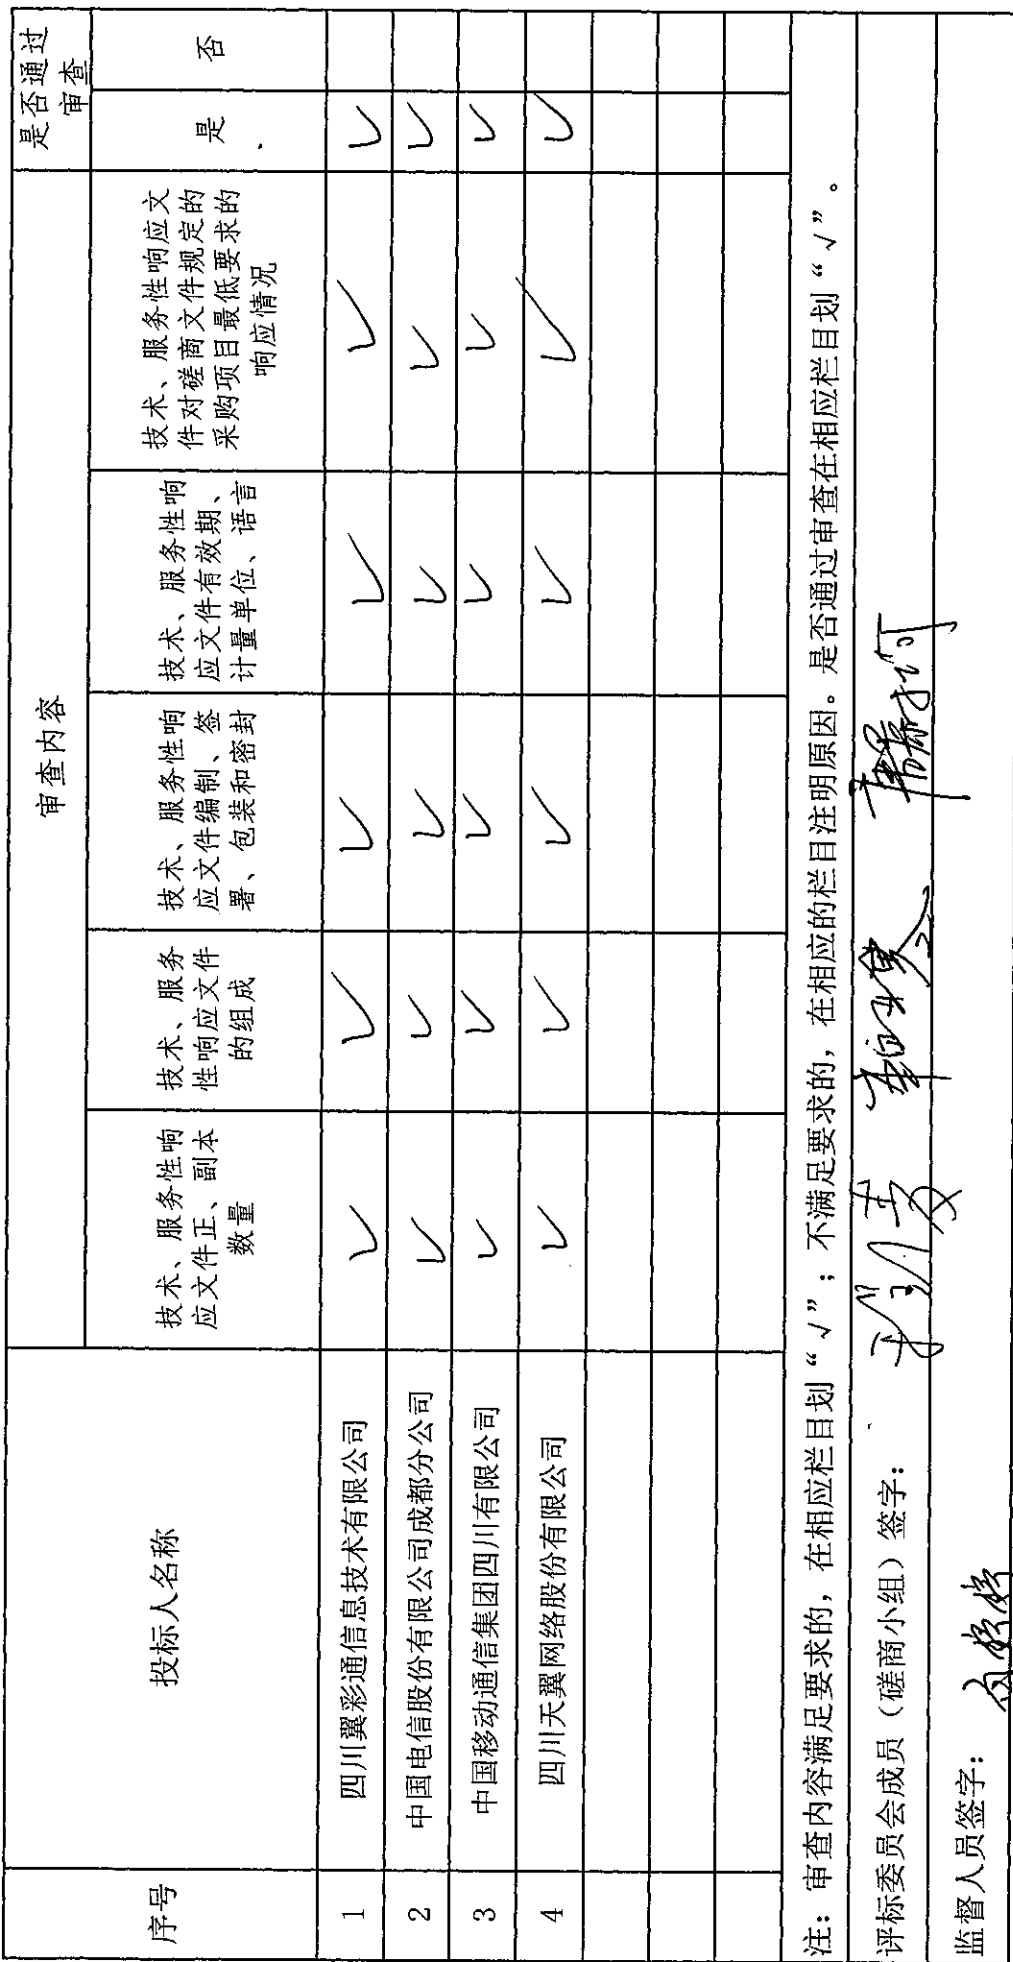 序号
投标人名称
审查内容
是否通过
审查
技术、服务性响
应文件正、副本
数量
技术、服务
性响应文件
的组成
技术、服务性响
应文件编制、签
署、包装和密封
技术、服务性响
应文件有效期、
计量单位、语言
技术、服务性响应文
件对磋商文件规定的
采购项目最低要求的
响应情况
是
否
1 四川翼彩通信息技术有限公司 ✓ ✓ ✓ ✓ ✓ ✓
2 中国电信股份有限公司成都分公司 ✓ ✓ ✓ ✓ ✓ ✓
3 中国移动通信集团四川有限公司 ✓ ✓ ✓ ✓ ✓ ✓
4 四川天翼网络股份有限公司 ✓ ✓ ✓ ✓ ✓ ✓
注：审查内容满足要求的，在相应栏目划“√”；不满足要求的，在相应的栏目注明原因。是否通过审查在相应栏目划“√”。
评标委员会成员（磋商小组）签字：
监督人员签字：